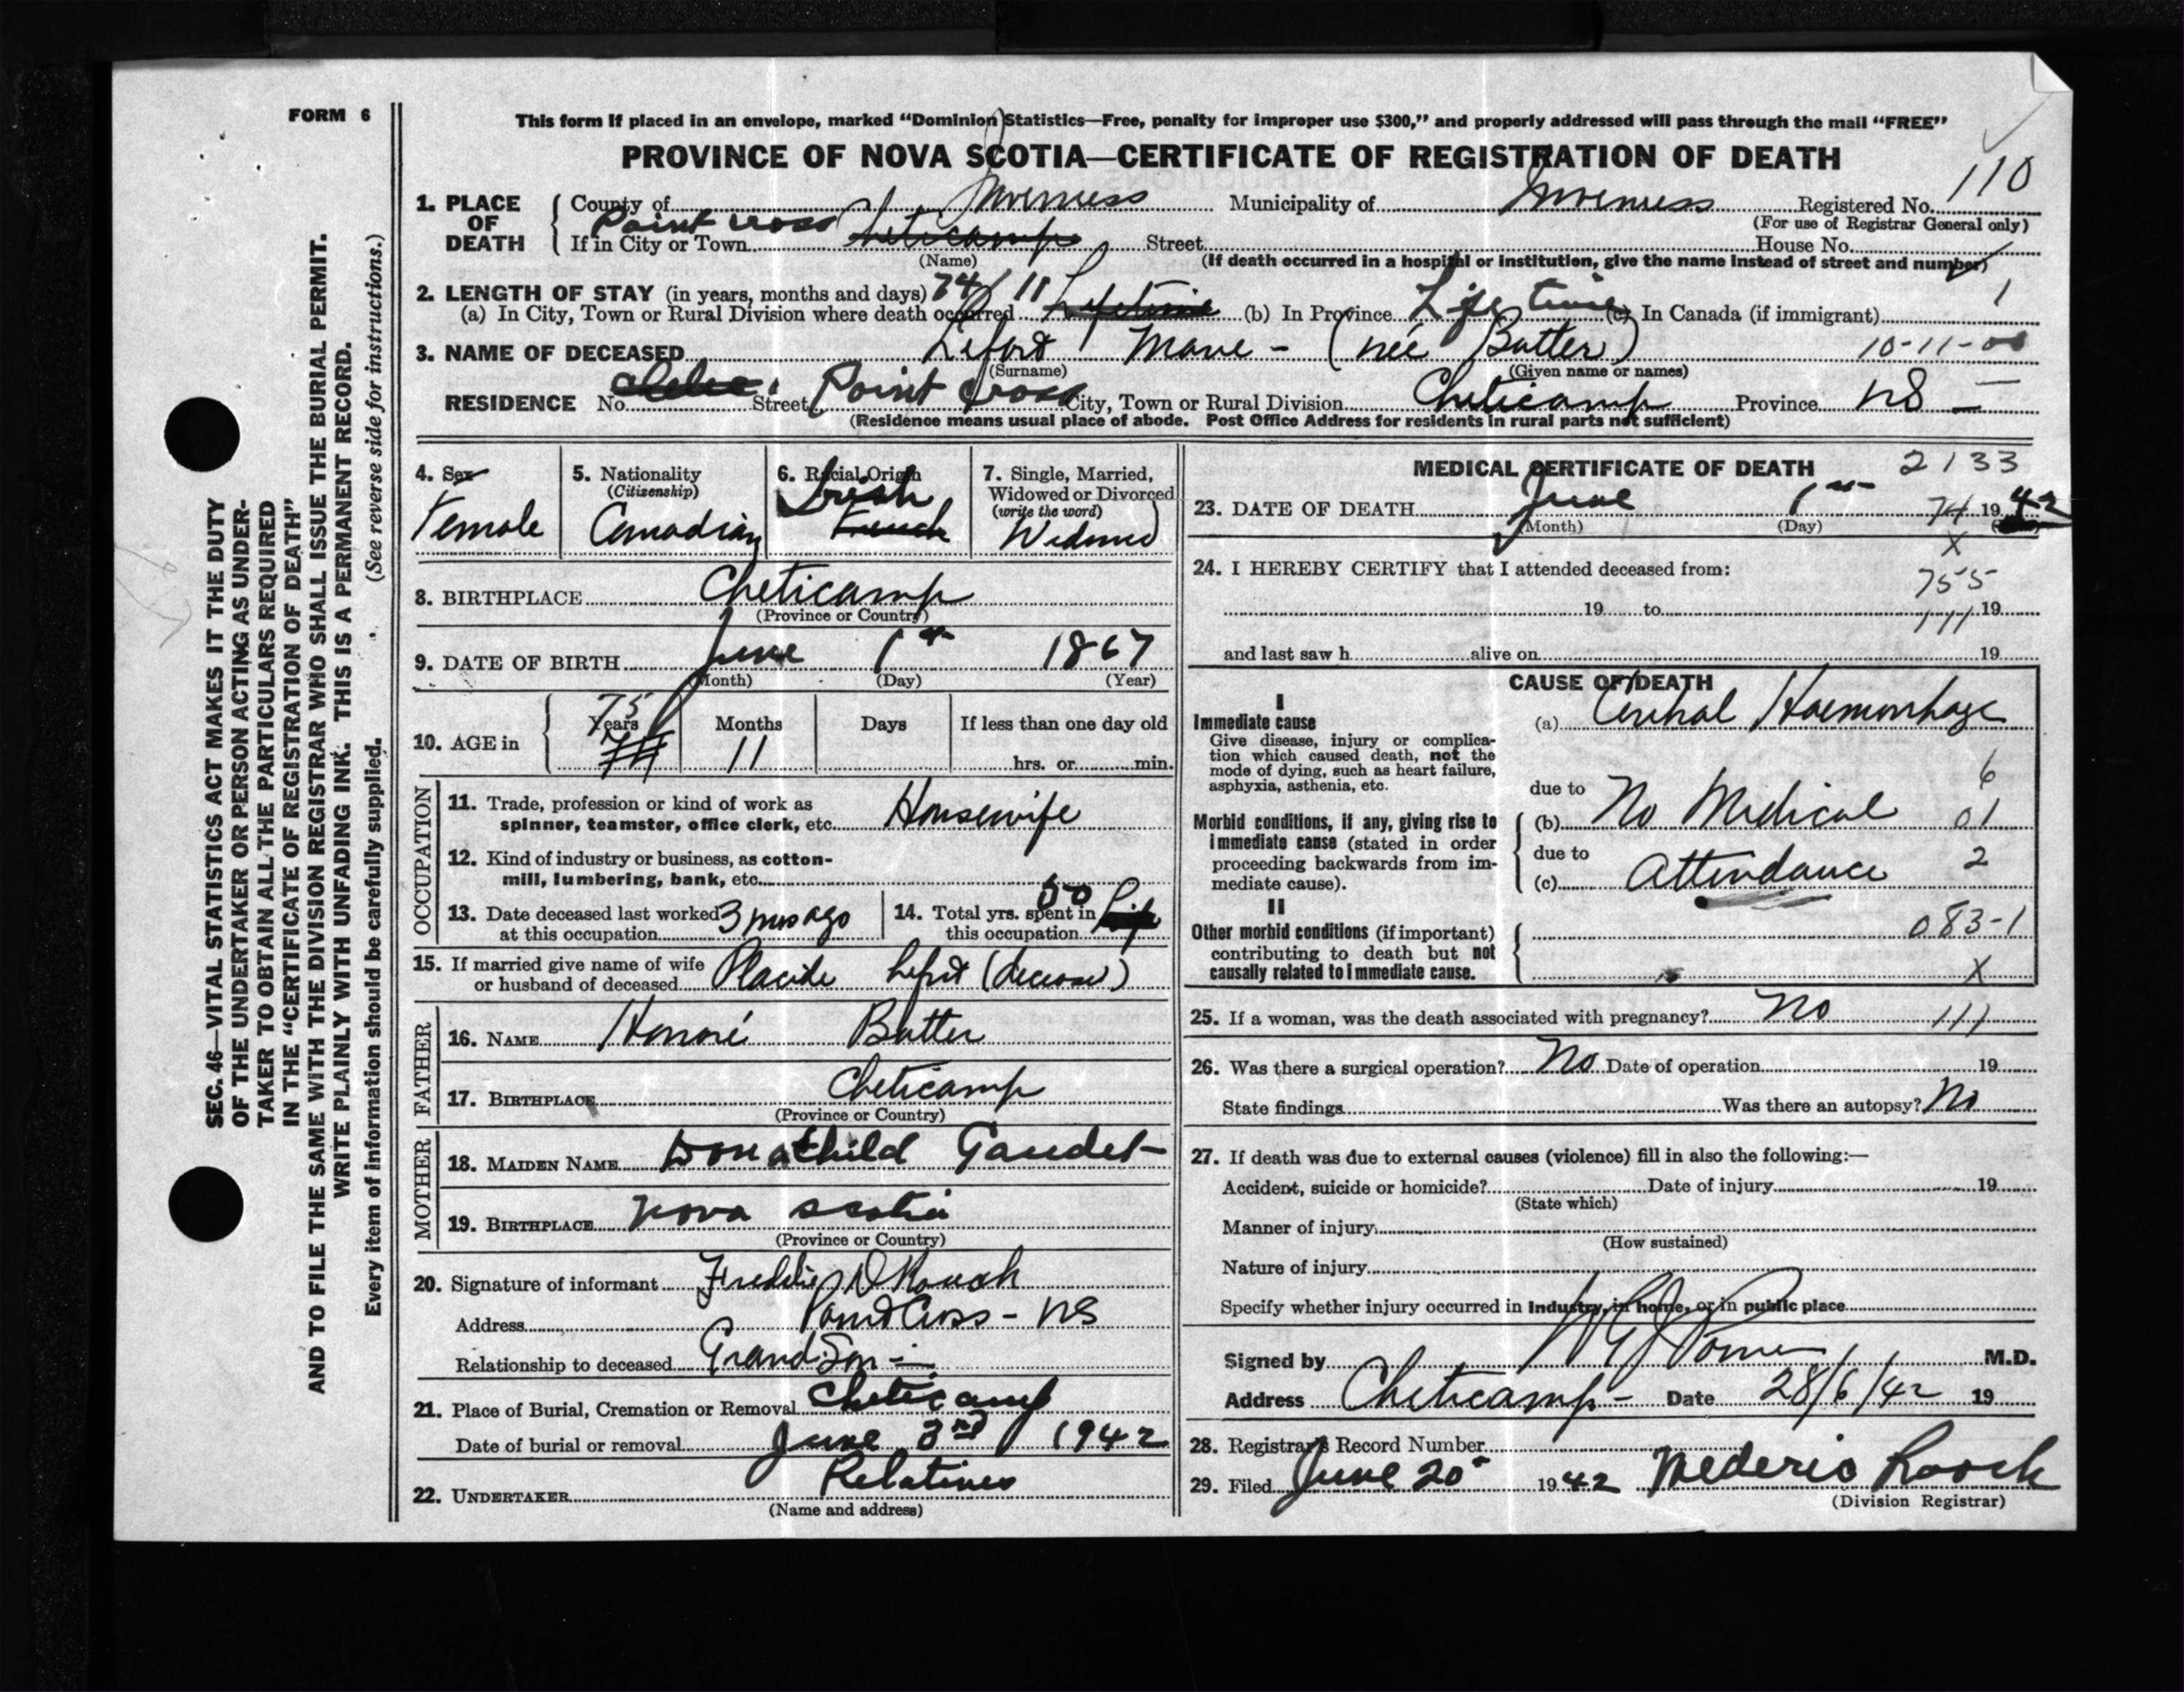 FORM 6
SEC. 46—VITAL STATISTICS ACT MAKES IT THE DUTY
OF THE UNDERTAKER OR PERSON ACTING AS UNDER-
TAKER TO OBTAIN ALL THE PARTICULARS REQUIRED
IN THE "CERTIFICATE OF REGISTRATION OF DEATH"
AND TO FILE THE SAME WITH THE DIVISION REGISTRAR WHO SHALL ISSUE THE BURIAL PERMIT.
WRITE PLAINLY WITH UNFADING INK. THIS IS A PERMANENT RECORD.
Every item of information should be carefully supplied. (See reverse side for instructions.)
This form if placed in an envelope, marked "Dominion Statistics—Free, penalty for improper use $300," and properly addressed will pass through the mail "FREE"
PROVINCE OF NOVA SCOTIA—CERTIFICATE OF REGISTRATION OF DEATH
110
1. PLACE OF DEATH County of Inverness Municipality of Inverness Registered No.
(For use of Registrar General only)
Point Cross
If in City or Town Cheticamp Street House No.
(Name) (If death occurred in a hospital or institution, give the name instead of street and number)
2. LENGTH OF STAY (in years, months and days) 74/11
(a) In City, Town or Rural Division where death occurred Lifetime (b) In Province Life time (c) In Canada (if immigrant)
3. NAME OF DECEASED Lefort Marie - (neé Butter) 10-11-00
(Surname) (Given name or names)
RESIDENCE No. Street Point Cross City, Town or Rural Division Cheticamp Province NS —
(Residence means usual place of abode. Post Office Address for residents in rural parts not sufficient)
4. Sex
Female
5. Nationality
(Citizenship)
Canadian
6. Racial Origin
Irish
French
7. Single, Married,
Widowed or Divorced
(write the word)
Widowed
8. BIRTHPLACE Cheticamp
(Province or Country)
9. DATE OF BIRTH June 1st 1867
(Month) (Day) (Year)
75
10. AGE in Years Months Days If less than one day old
74 11 hrs. or min.
OCCUPATION
11. Trade, profession or kind of work as
spinner, teamster, office clerk, etc. Housewife
12. Kind of industry or business, as cotton-
mill, lumbering, bank, etc.
13. Date deceased last worked
at this occupation 3 mos ago
14. Total yrs. spent in
this occupation 50 Life
15. If married give name of wife
or husband of deceased Placide Lefort (decease)
FATHER
16. NAME Honoré Butter
17. BIRTHPLACE Cheticamp
(Province or Country)
MOTHER
18. MAIDEN NAME Donathild Gaudet
19. BIRTHPLACE Nova Scotia
(Province or Country)
20. Signature of informant Freddie D Roach
Address Point Cross - NS
Relationship to deceased Grand Son -
21. Place of Burial, Cremation or Removal Cheticamp
Date of burial or removal June 3rd 1942
22. UNDERTAKER Relatives
(Name and address)
MEDICAL CERTIFICATE OF DEATH 2133
23. DATE OF DEATH June 1st 74 1942
(Month) (Day)
X
24. I HEREBY CERTIFY that I attended deceased from:
755
19 to 19
111
and last saw h alive on 19
CAUSE OF DEATH
I
Immediate cause (a) Cerebral Haemorrhage
Give disease, injury or complica-
tion which caused death, not the
mode of dying, such as heart failure,
asphyxia, asthenia, etc.
6
due to
Morbid conditions, if any, giving rise to
immediate cause (stated in order
proceeding backwards from im-
mediate cause).
(b) No Medical 01
due to 2
(c) Attendance
II
Other morbid conditions (if important)
contributing to death but not
causally related to immediate cause.
083-1
X
25. If a woman, was the death associated with pregnancy? No 111
26. Was there a surgical operation? No Date of operation 19
State findings Was there an autopsy? No
27. If death was due to external causes (violence) fill in also the following:—
Accident, suicide or homicide? Date of injury 19
(State which)
Manner of injury
(How sustained)
Nature of injury
Specify whether injury occurred in Industry, in home, or in public place
Signed by M.D.
Address Cheticamp - Date 28/6/42 19
28. Registrar's Record Number
29. Filed June 20 1942 Mederic Roach
(Division Registrar)